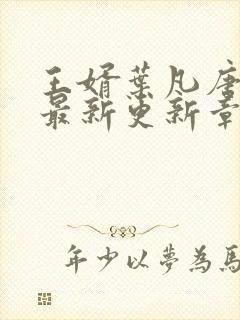 王婿葉凡唐
最新更新章
年少以夢為馬